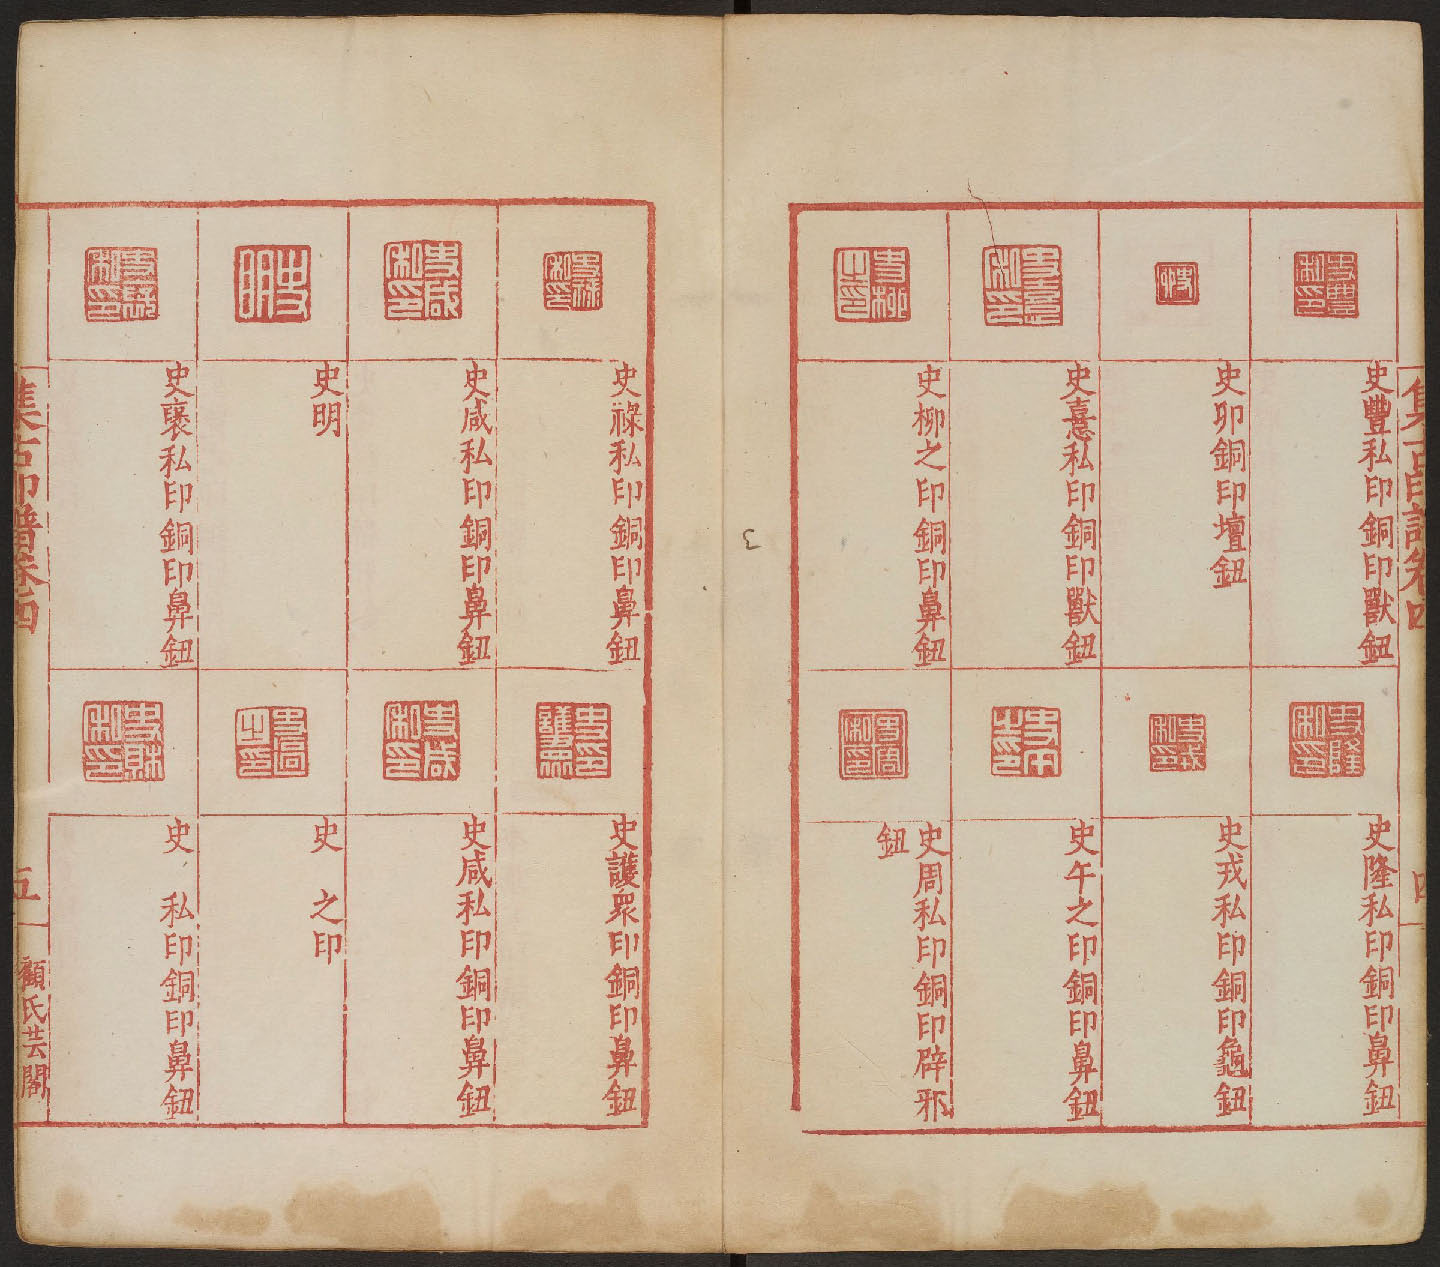 集古印譜卷四
四
史豐私印銅印獸鈕
史卯銅印壇鈕
史憙私印銅印獸鈕
史柳之印銅印鼻鈕
史隆私印銅印鼻鈕
史戎私印銅印龜鈕
史午之印銅印鼻鈕
史周私印銅印辟邪
鈕
史祿私印銅印鼻鈕
史咸私印銅印鼻鈕
史明
史襃私印銅印鼻鈕
史護衆印銅印鼻鈕
史咸私印銅印鼻鈕
史 之印
史 私印銅印鼻鈕
集古印譜卷四
五
顧氏芸閣